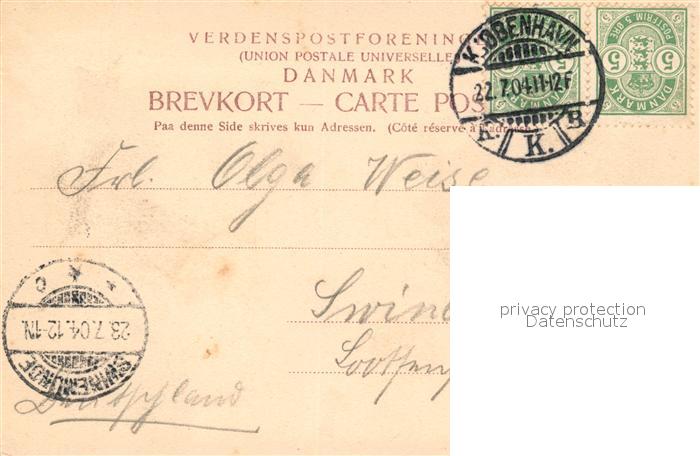 VERDENSPOSTFORENING
(UNION POSTALE UNIVERSELLE
DANMARK
BREVKORT — CARTE POS
Paa denne Side skrives kun Adressen. (Côté réservé à l'adresse
KJØBENHAVN
22.7.04.11-12F
K. K. B.
POSTFRIM 5 ØRE
5 5
DANMARK
Frl. Olga Weise
Swine
Lootsen
SWINEMÜNDE
23.7.04.12-1N.
* * C
Deutschland
privacy protection
Datenschutz